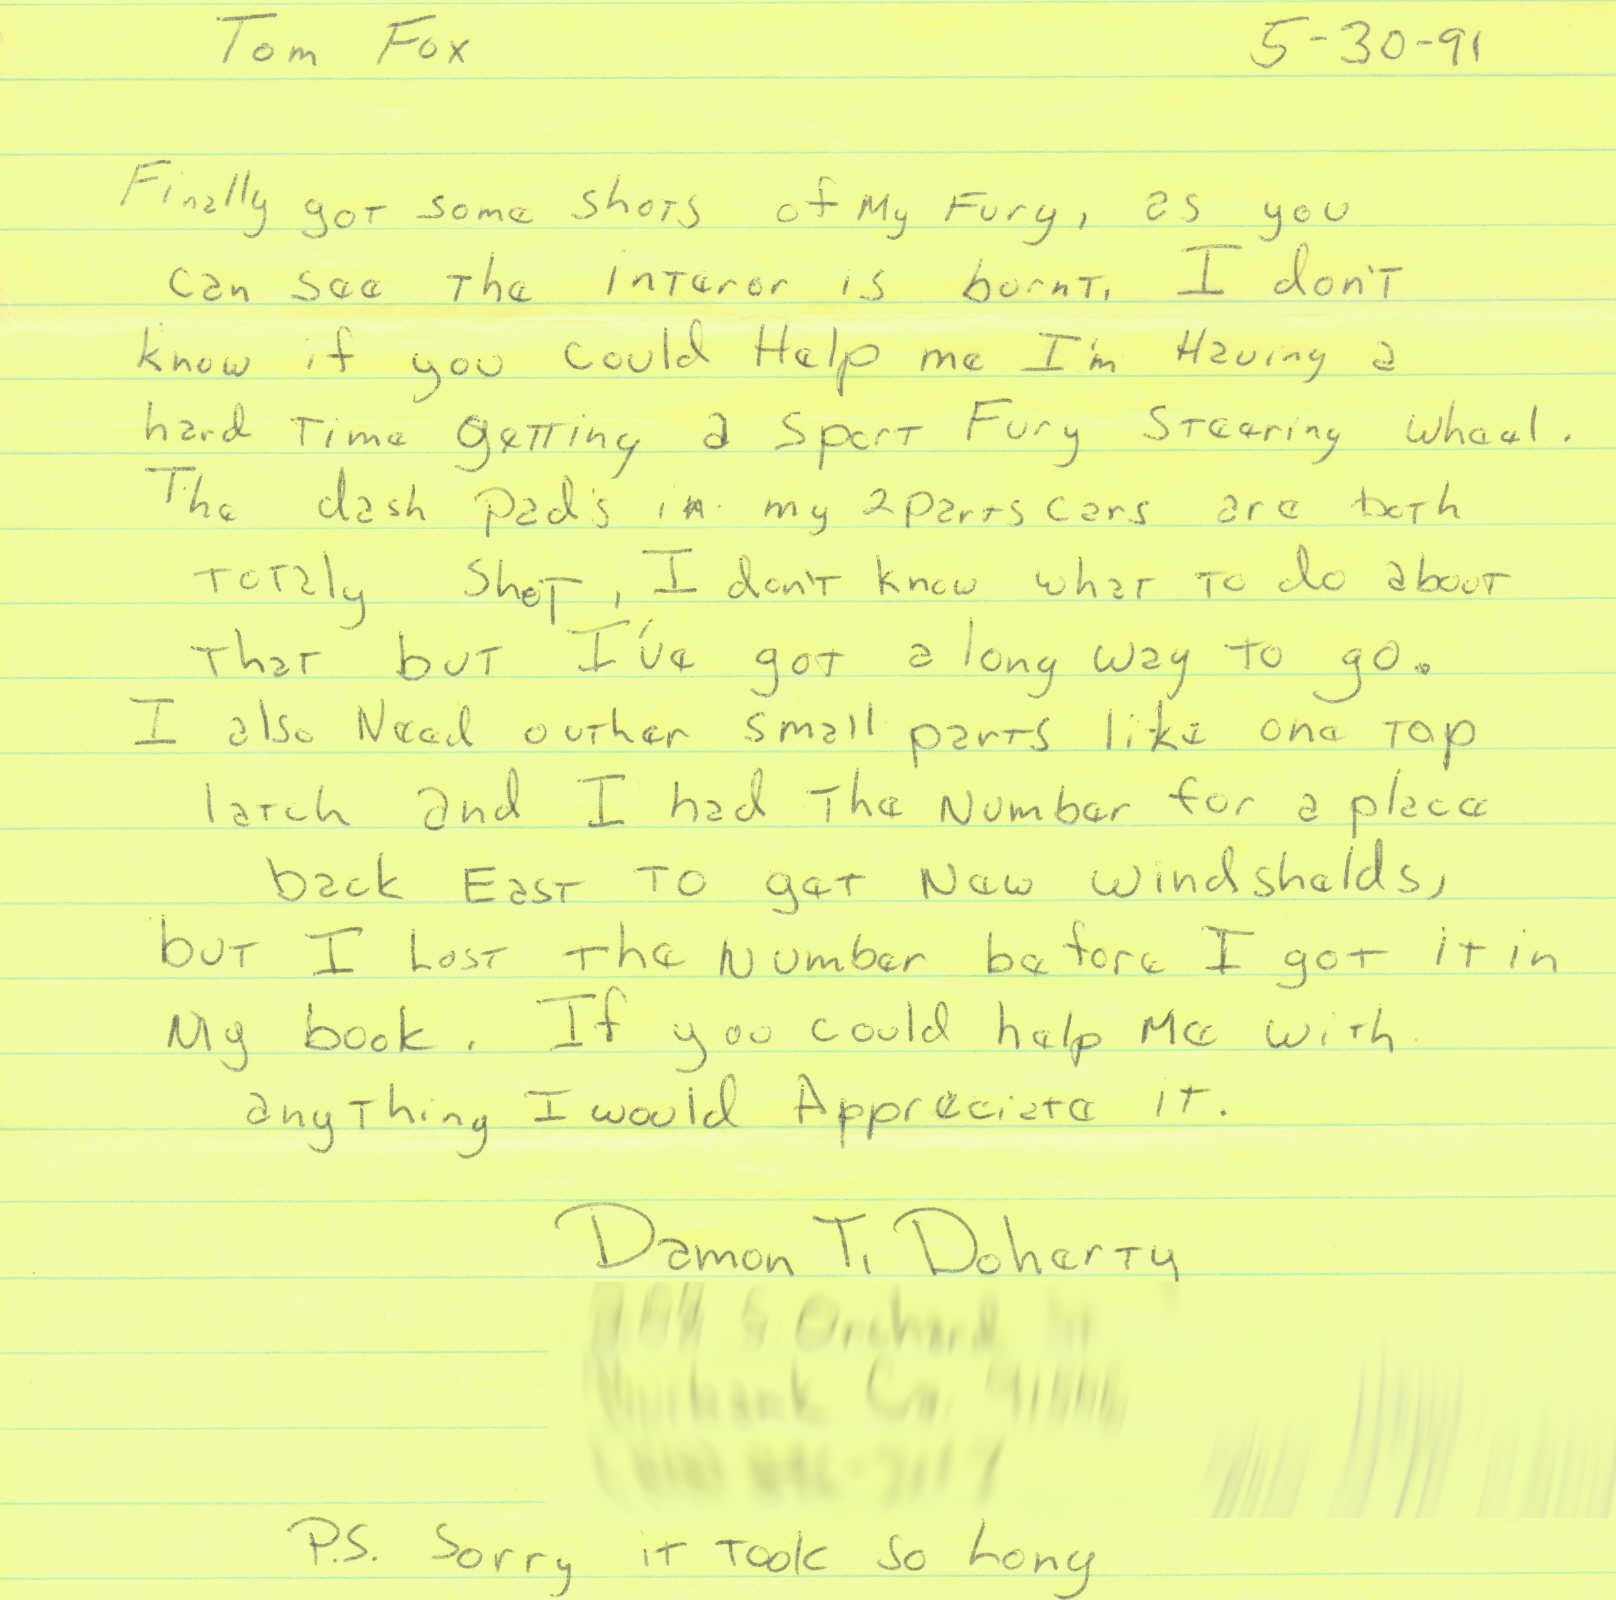 Tom Fox 5-30-91
Finally got some shots of My Fury, as you
can see the interor is burnt, I don't
know if you could Help me I'm Having a
hard Time getting a Sport Fury Steering wheel.
The dash pad's in my 2 parts cars are both
totaly shot, I don't know what to do about
that but I've got a long way to go.
I also Need outher small parts like one top
latch and I had The Number for a place
back East to get New windshelds,
but I Lost the Number before I got it in
My book. If you could help Me with
anything I would Appreciate it.
Damon T. Doherty
P.S. Sorry it took so Long